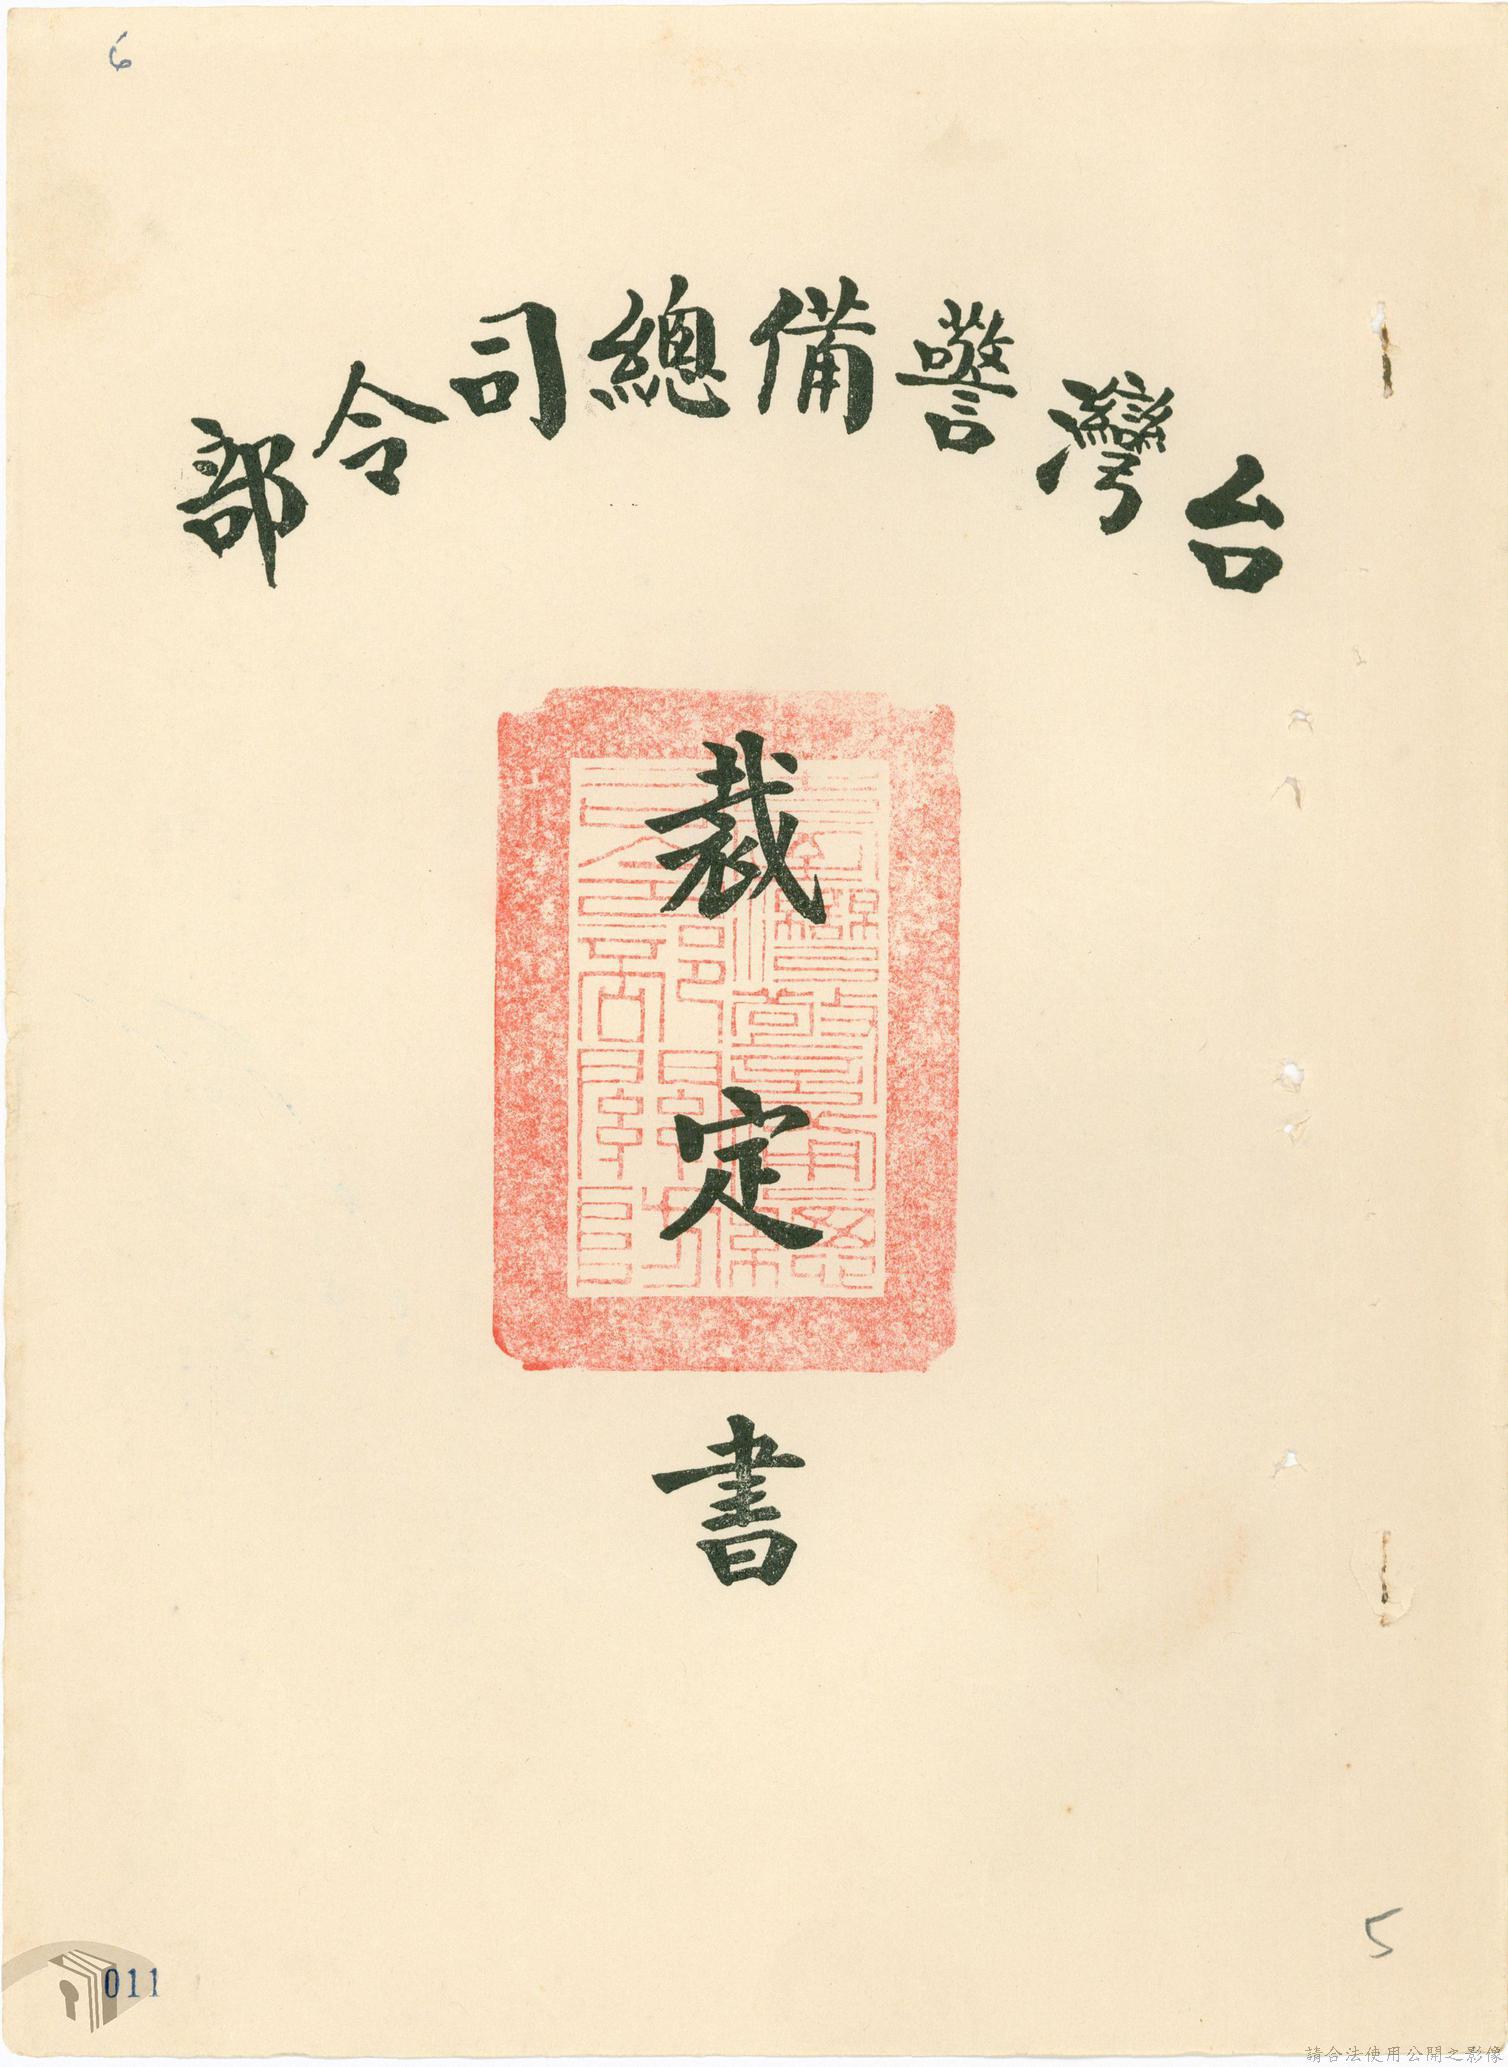 6
台灣警備總司令部
裁定書
5
011
請合法使用公開之影像